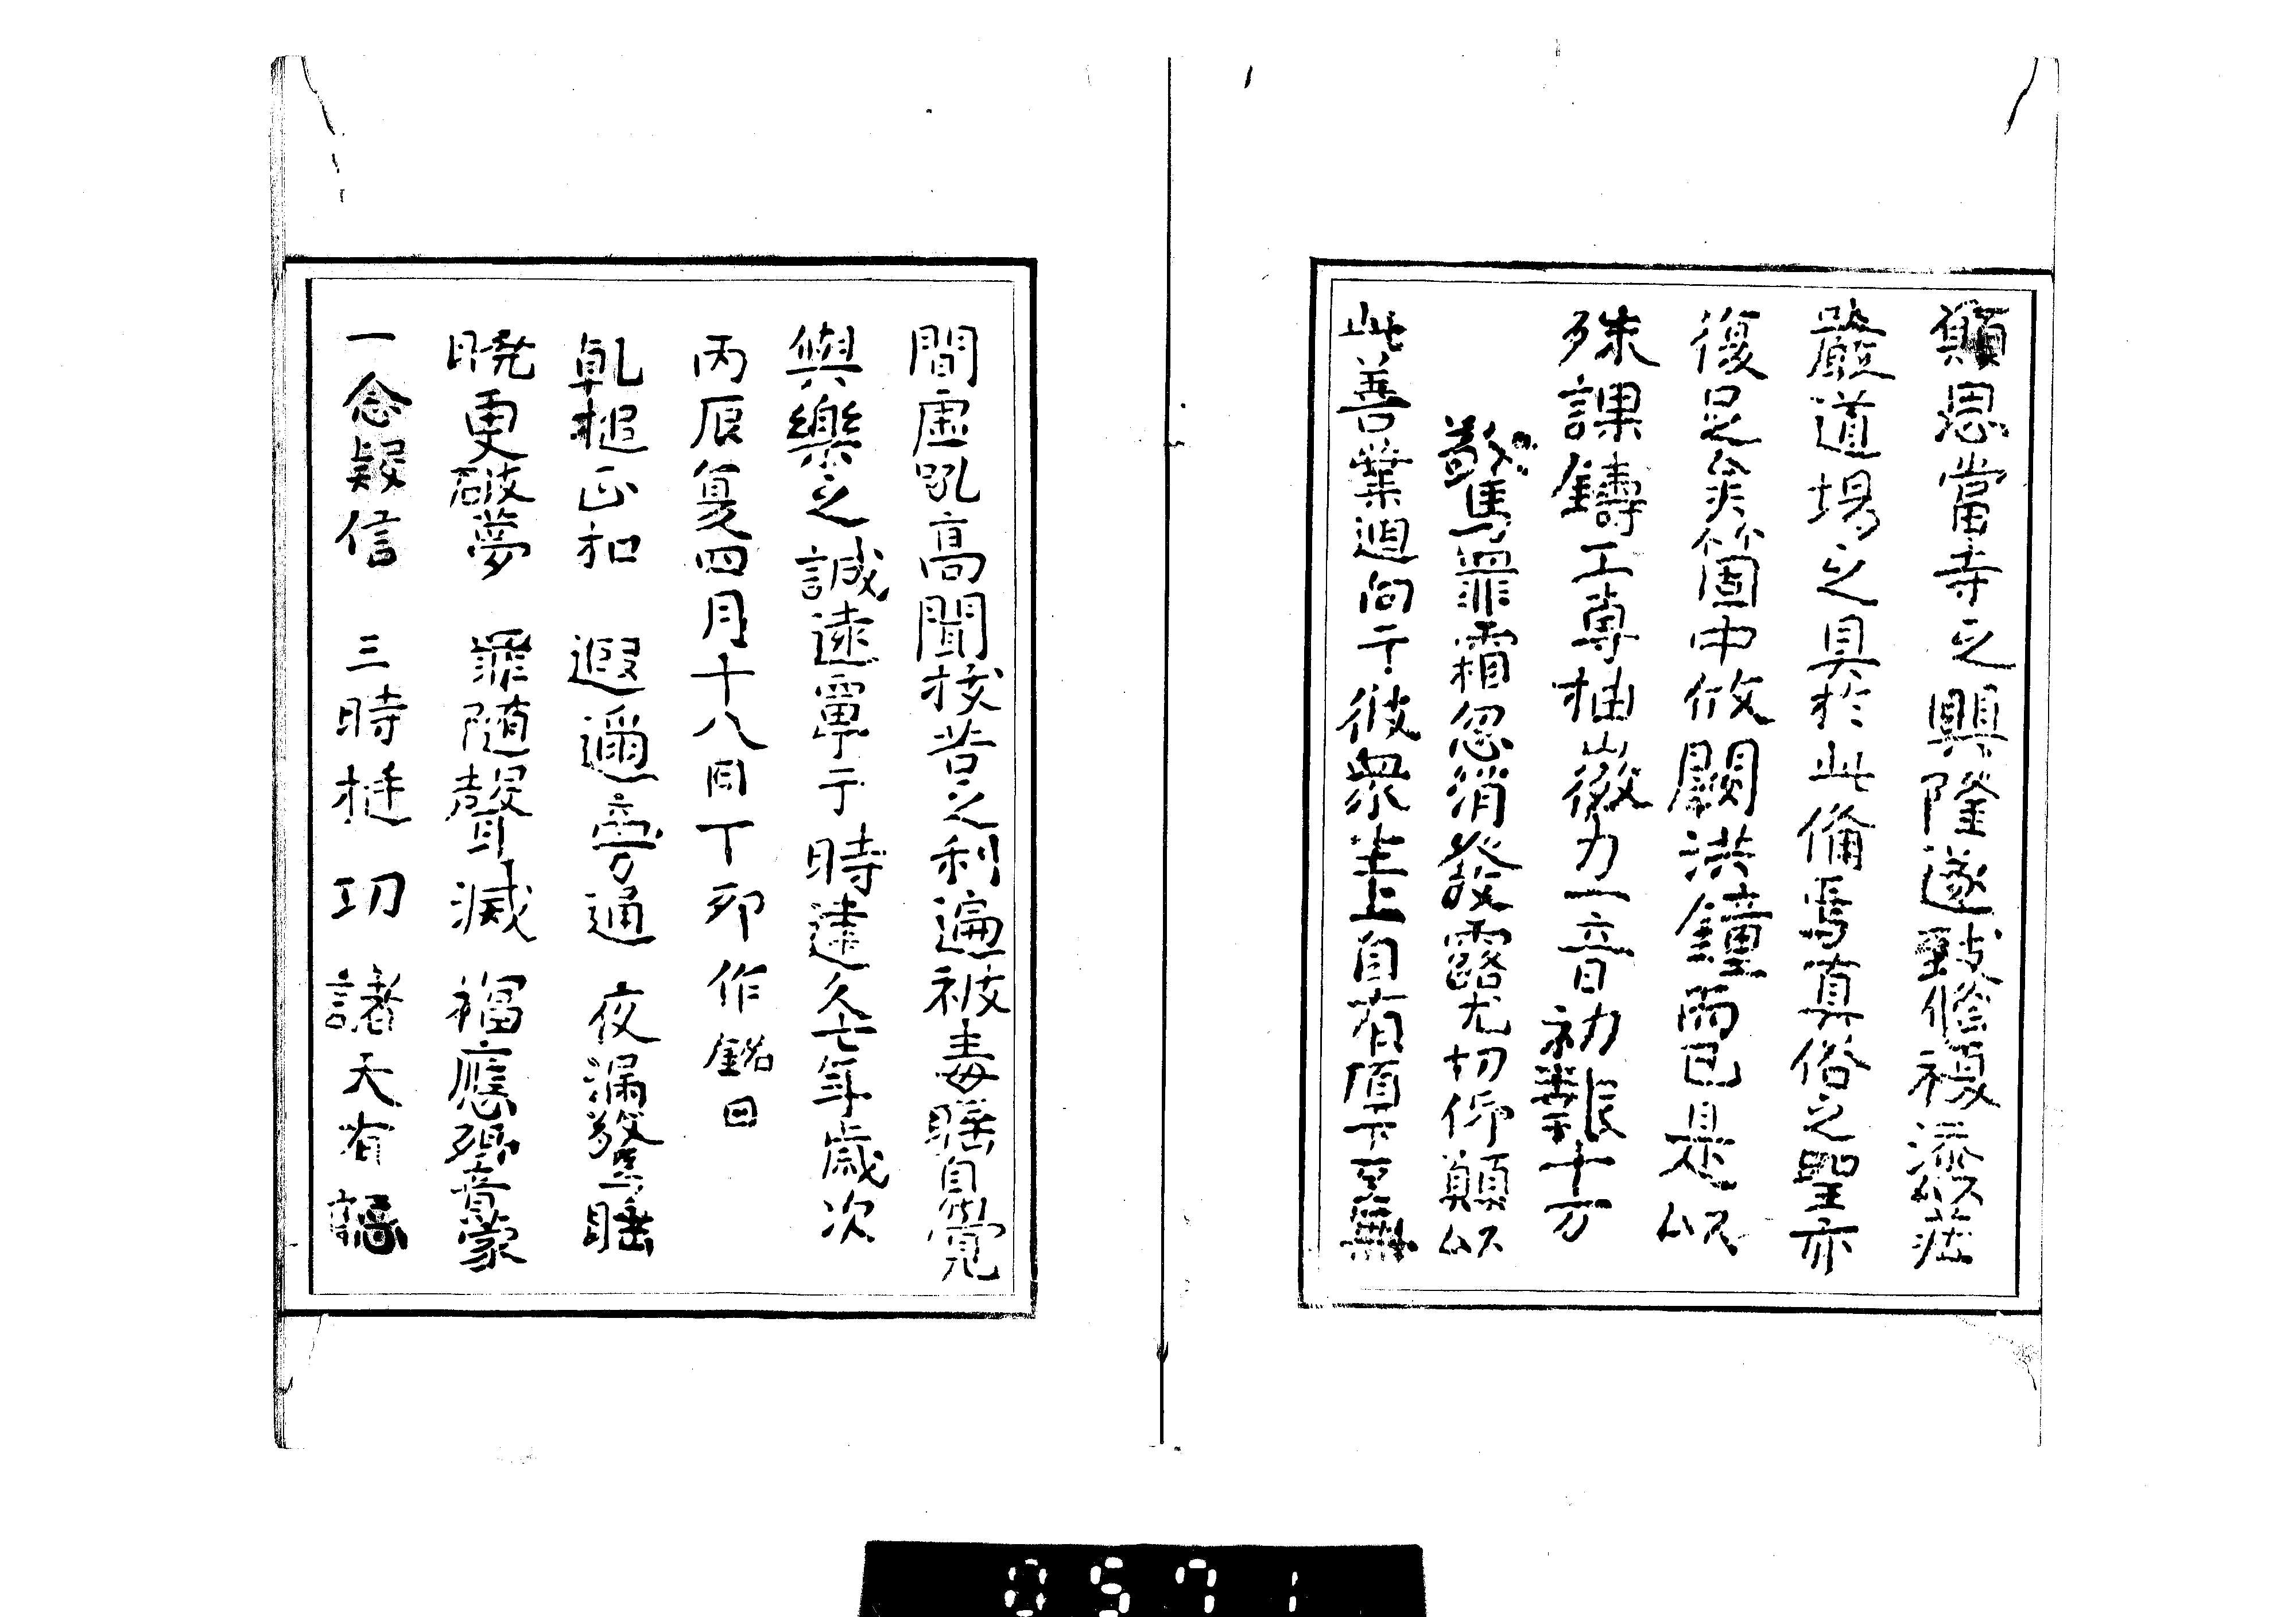 顛思當寺之興隆遂致修複添以莊
嚴道場之具於此備焉真俗之聖亦
復足矣然箇中攸闕洪鐘而已是以
殊課鑄工專抽微力一音初報十方
驚罪霜忽消發露尤切仰願以
此善業廻向于彼衆生上自有頂下至無
間虚吼高聞抜苦之利遍被毒睡自覺
與樂之誠遠覃于時建久七年歳次
丙辰夏四月十八日丁卯作銘曰
乹槌正扣 遐邇旁通 夜漏驚睡
曉更破夢 罪随聲滅 福應響蒙
一念疑信 三時 功 諸天有
0571